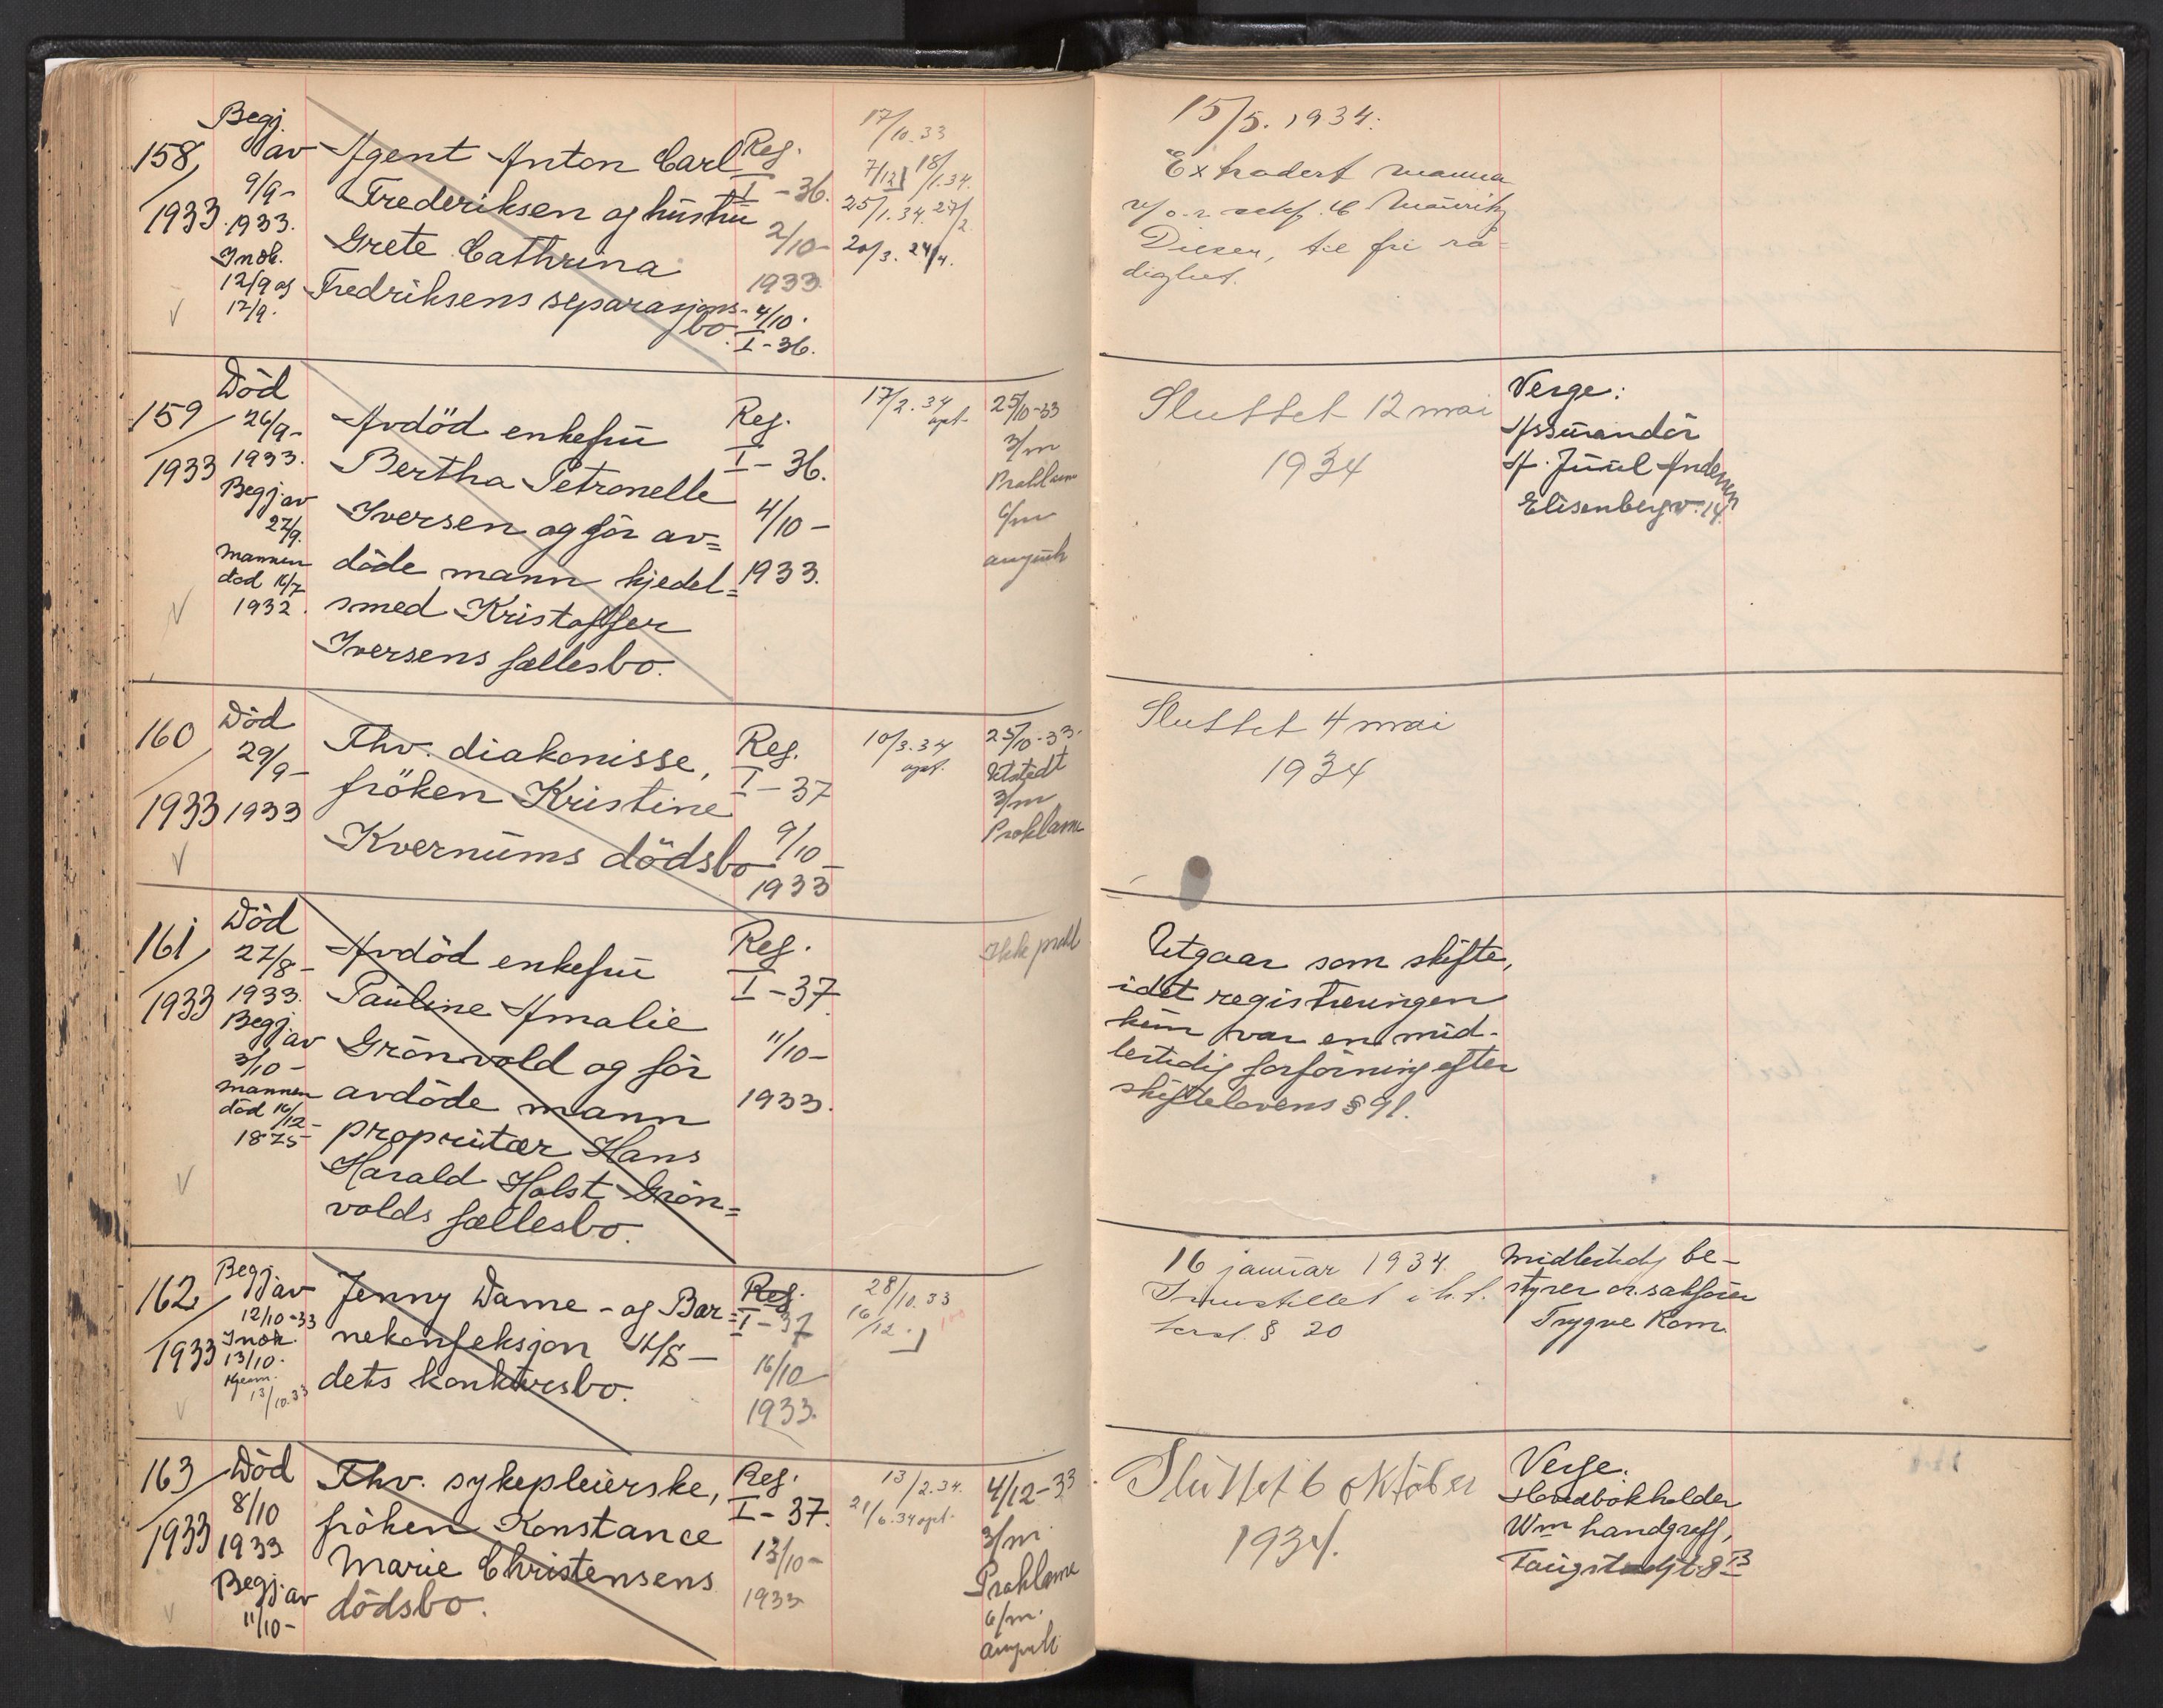 Begj.
av
158/1933
9/9-
1933.
Innk.
12/9 og
12/9.
Agent Anton Carl
Frederiksen og hustru
Grete Cathrina
Fredriksens separasjons-
bo.
Reg.
I - 36.
2/10-
1933
4/10.
I - 36.
17/10.33
7/12 18/1.34.
25/1.34. 27/2
20/3. 24/4.
15/5. 1934.
Extradert manna
Mauritz
til fri rå=
dighet.
159/1933
Død
26/9-
1933.
Begj. av
27/9.
Mannen
død 16/7
1932.
Avdöd enkefru
Bertha Petronelle
Iversen og för av=
döde mann kjedel=
smed Kristoffer
Iversens fællesbo.
Reg.
I - 36.
4/10 -
1933.
17/2.34
opt.
25/10-33
3/m
Proklama
6/m
Sluttet 12 mai
1934
Verge:
Assurandör
A. Juul Andersen
Elisenbergv. 14.
160/1933
Död
29/9-
1933
Fhv. diakonisse,
fröken Kristine
Kvernums dödsbo
Reg.
I - 37
9/10 -
1933
10/3.34
opt.
25/10-33.
Utstedt
3/m
Proklama
Sluttet 4 mai
1934
161/1933
Död
27/8-
1933.
Begj. av
3/10-
Mannen
död 16/12-
1875
Avdöd enkefru
Pauline Amalie
Grönvold og för
avdöde mann
proprietær Hans
Harald Holst Grön=
volds fællesbo.
Reg.
I - 37.
11/10-
1933.
Ikke prokl
Utgaar som skifte,
idet registreringen
kun var en mid-
lertidig forföining efter
skiftelovens § 91.
162/1933
Begj. av
12/10-33
Innk.
13/10.
13/10.33
Jenny Dame- og Bar=
nekonfeksjon A/S -
dets konkursbo.
Reg.
I - 37
16/10
1933.
28/10.33
16/12.
16 januar 1934.
Innstillet i h. t.
§ 20
Midlertidig be-
styrer or. sakförer
Trygve Rom.
163/1933
Död
8/10
1933
Begj. av
11/10-
Fhv. sykepleierske,
fröken Konstance
Marie Christensens
dödsbo.
Reg.
I - 37.
13/10-
1933
13/2.34.
21/6.34 opt.
4/12-33
3/m.
Proklama
6/m.
Sluttet 6 oktober
1934.
Verge.
Hovedbokholder
Wm Landgraff,